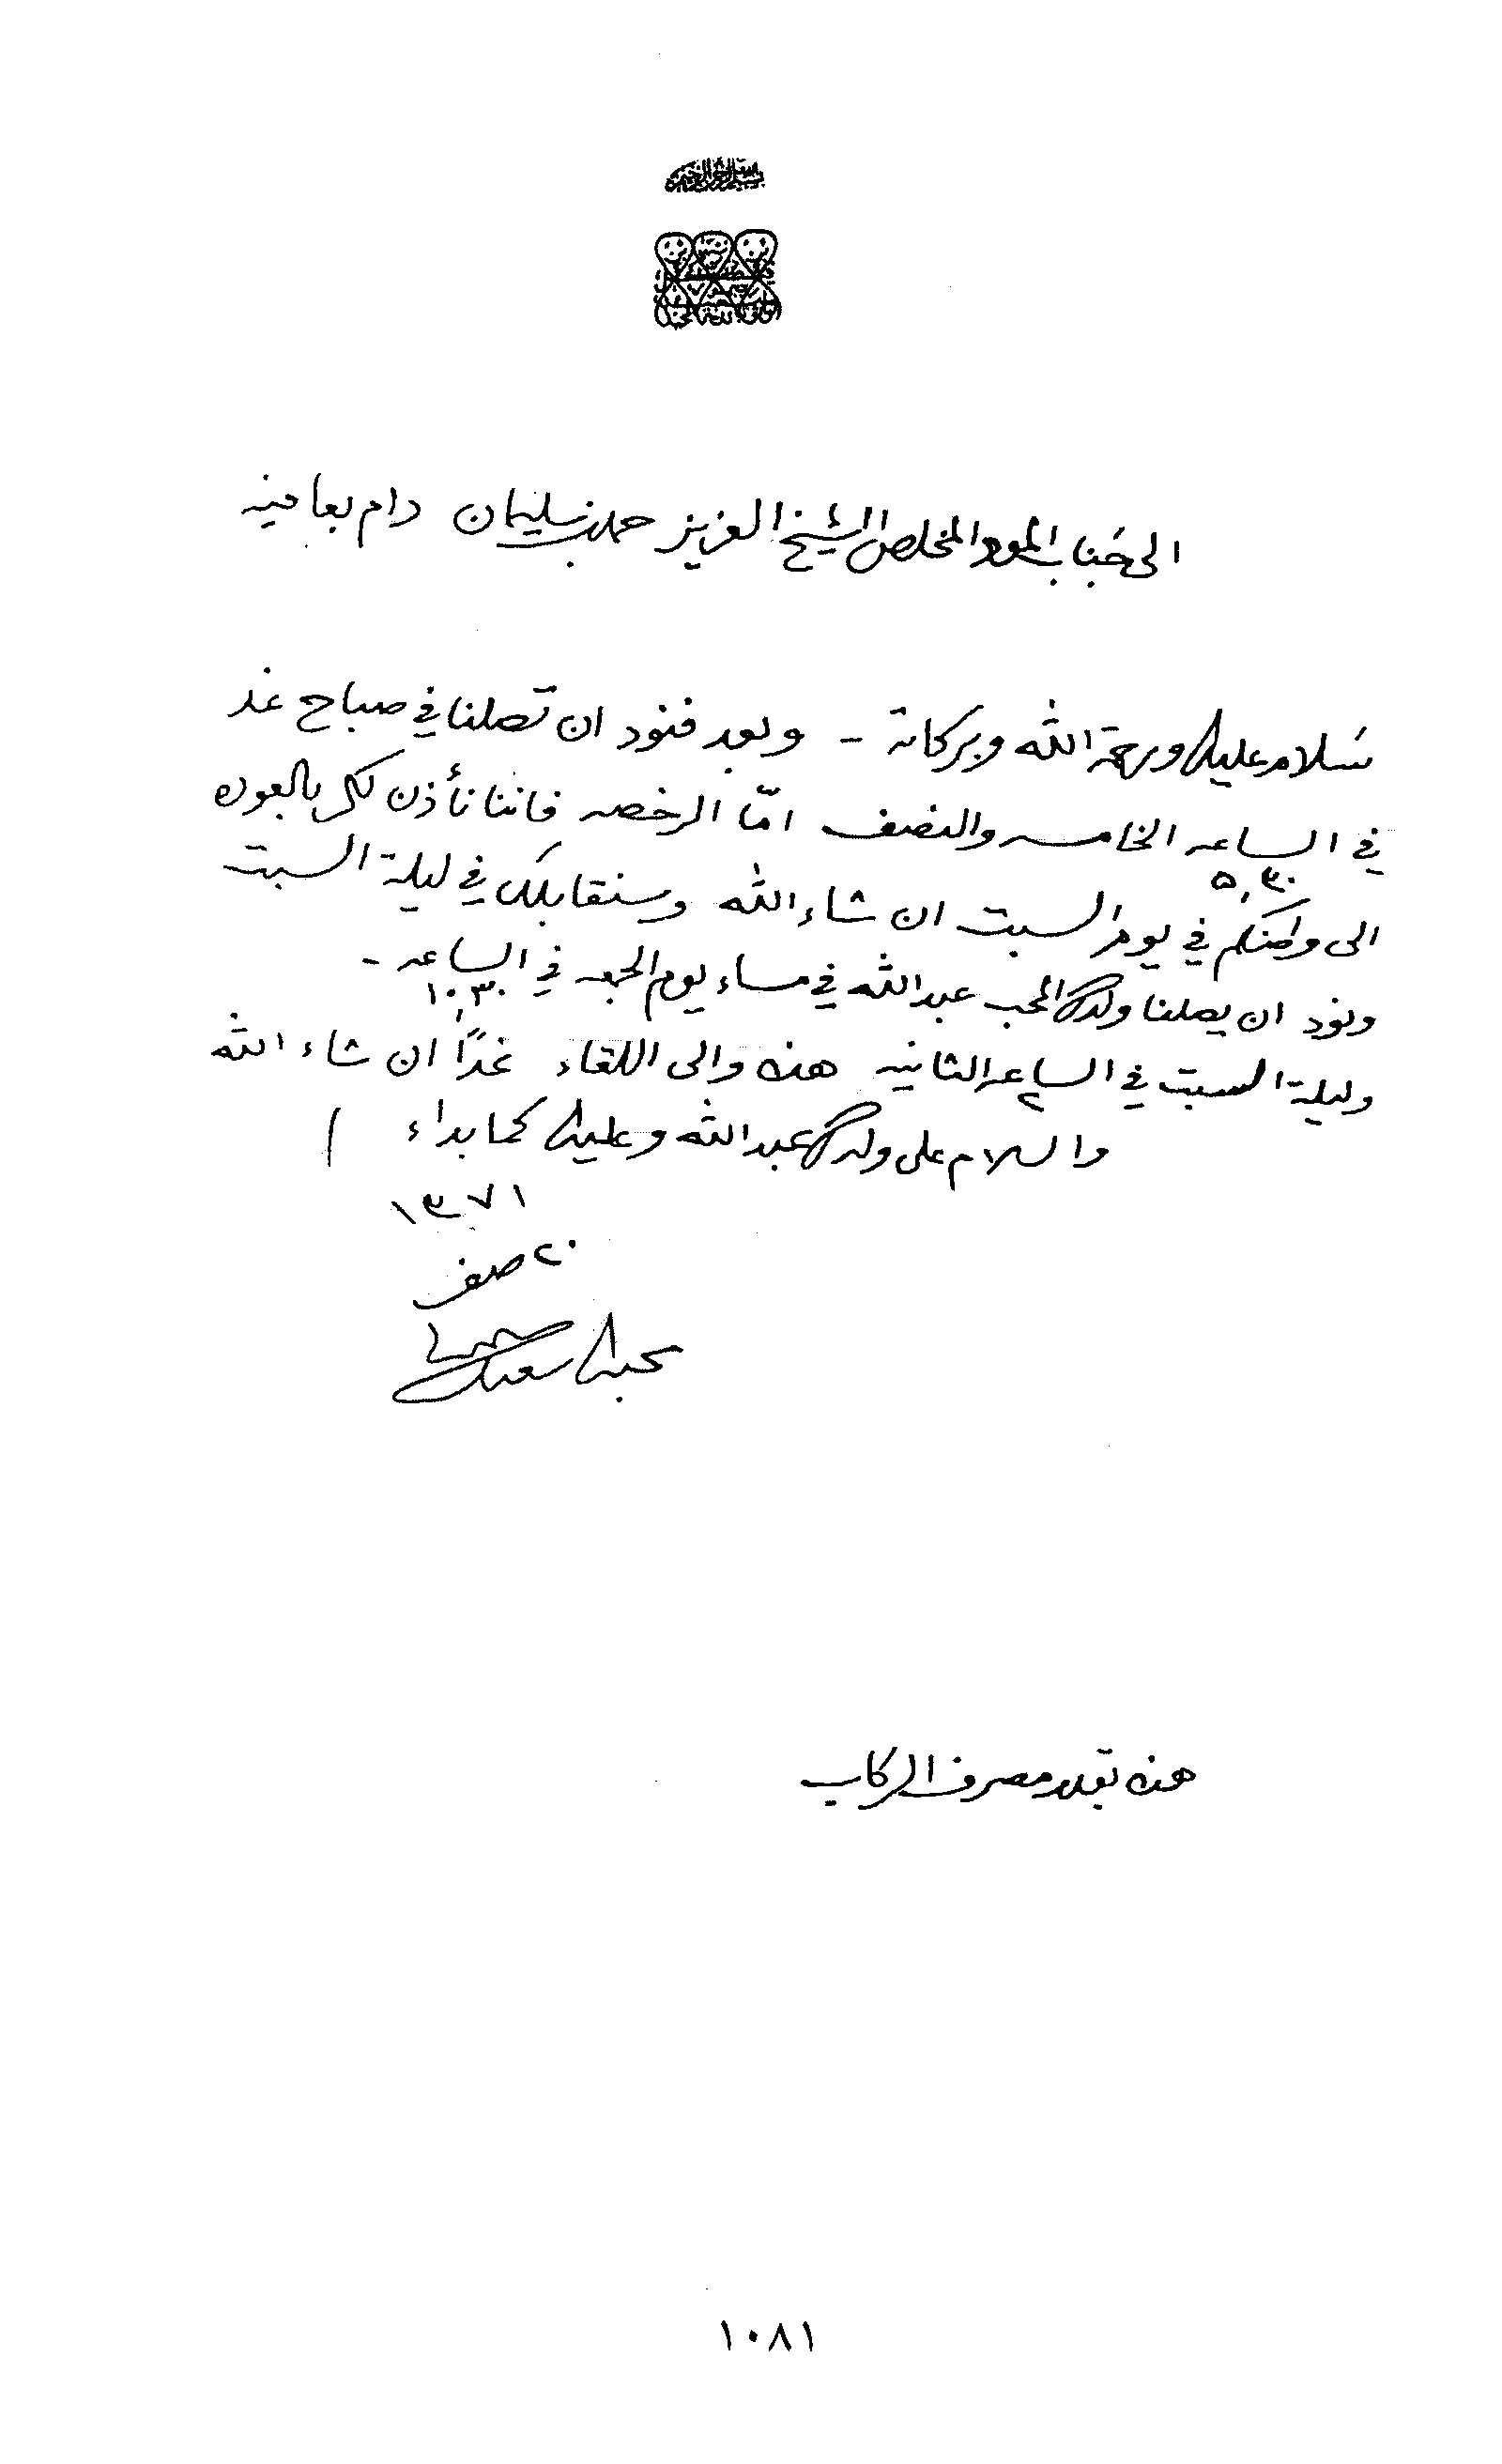 الى جناب المود المخلص الشيخ العزيز حمد بن سليمان دام بعافيه
سلام عليك ورحمة الله وبركاته - وبعد فنود ان تصلنا في صباح غد
في الساعه الخامسه والنصف امّا الرخصه فاننا نأذن لك بالعوده
٥,٣٠
الى وطنكم في يوم السبت ان شاء الله وسنقابلك في ليلة السبت
ونود ان يصلنا ولدك المحب عبدالله في مساء يوم الجمعه في الساعه -
١٠,٣٠
وليلة السبت في الساعه الثانيه هذه والى اللقاء غداً ان شاء الله
٢
والسلام على ولدك عبدالله وعليك كما بداء
١٣٧١
٢٠ صفر
محبك سعيد
هذه بقدر مصرف الركاب
١٠٨١